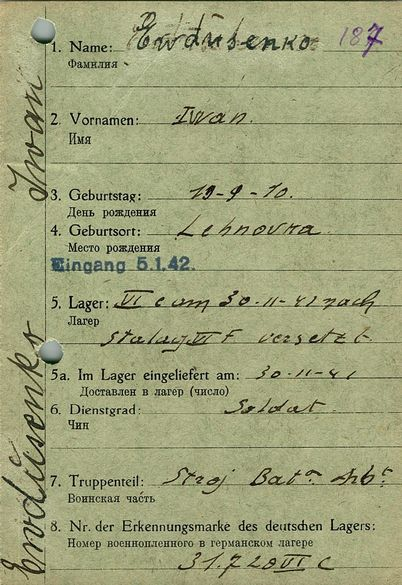 187
1. Name: Ewdusenko
Фамилия
2. Vornamen: Iwan.
Имя
3. Geburtstag: 19-9-10.
День рождения
4. Geburtsort: Lehnovka
Место рождения
Eingang 5.1.42.
5. Lager: VI C am 30-11-41 nach
Лагерь
Stalag VI F versetzt
5a. Im Lager eingeliefert am: 30-11-41
Доставлен в лагерь (число)
6. Dienstgrad: Soldat
Чин
7. Truppenteil: Stroj Bat.
Воинская часть
8. Nr. der Erkennungsmarke des deutschen Lagers:
Номер военнопленного в германском лагере
31.720 VI C
Ewdusenko Iwan